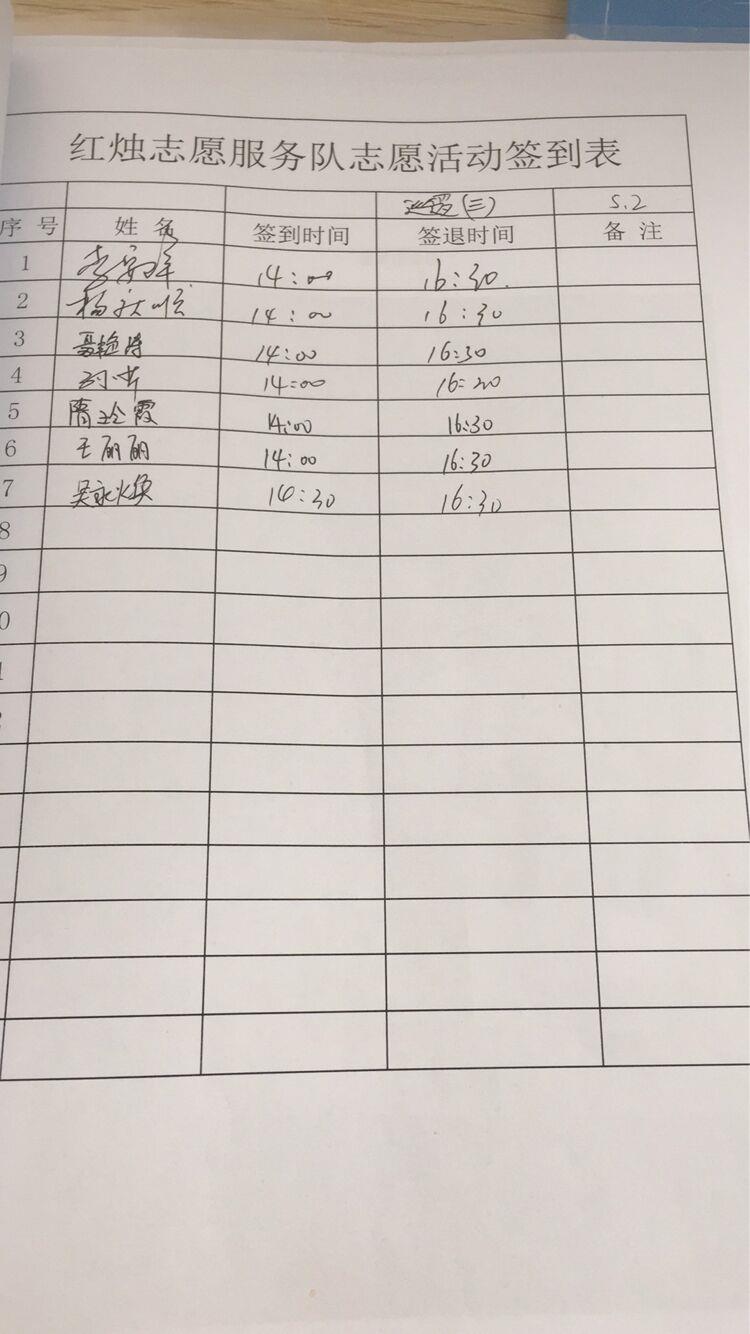 红烛志愿服务队志愿活动签到表
巡逻(三) 5.2
序号 姓名 签到时间 签退时间 备注
1 李安祥 14:00 16:30.
2 杨秋顺 14:00 16:30
3 聂艳涛 14:00 16:30
4 14:00 16:20
5 隋玲霞 14:00 16:30
6 王丽丽 14:00 16:30
7 吴永焕 14:30 16:30
8
9
0
1